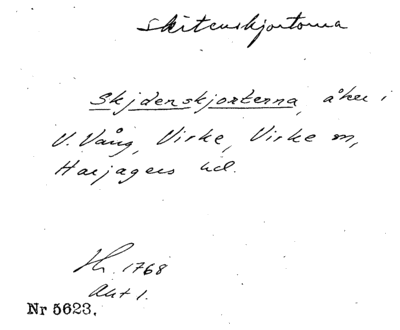 Skitenskjortorna
Skjdenskjorterna, åker i
V. Vång, Virke, Virke m,
Harjagers hd.
Hh. 1768
Akt 1.
Nr 5623.